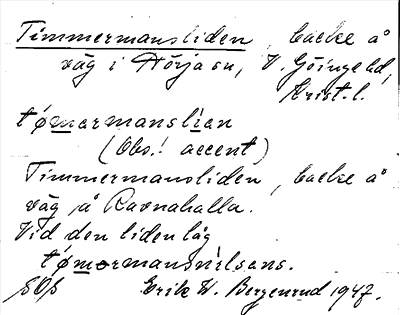 Timmermansliden, backe å
väg i Hörja sn, V. Göinge hd,
Krist. l.
tømərmanslian
(Obs.! accent)
Timmermansliden, backe å
väg på Ravnahalla.
Vid den liden låg
tømərmansnilsans.
Erik W. Bergenrud 1947.